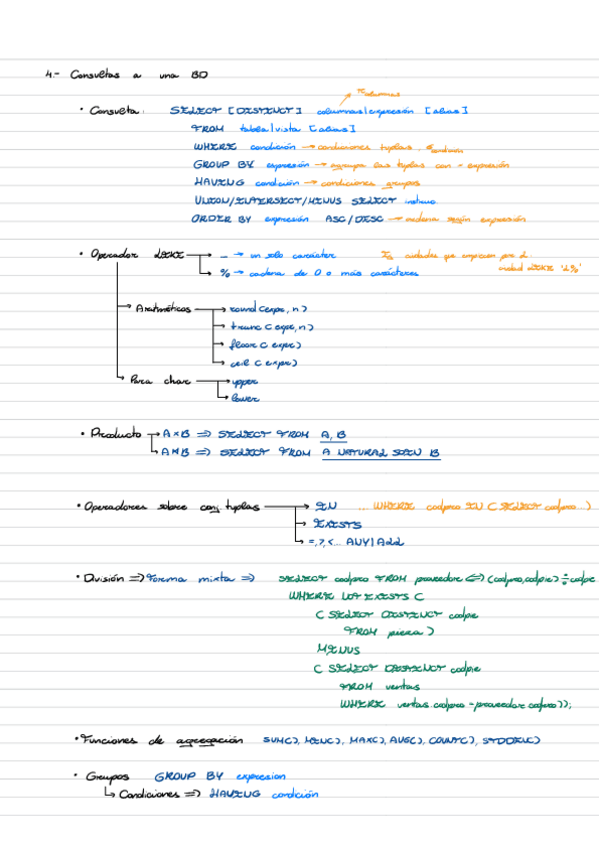 4.- Consultas a una BD
πcolumnas
• Consulta: SELECT [DISTINCT] columnas|expresión [alias]
FROM tabla|vista [alias]
WHERE condición → condiciones tuplas. σcondición
GROUP BY expresión → agrupa las tuplas con = expresión
HAVING condición → condiciones grupos
UNION/INTERSECT/MINUS SELECT
ORDER BY expresión ASC/DESC → ordena según expresión
• Operador LIKE → _ → un solo carácter Ej ciudades que empiecen por L:
→ % → cadena de 0 o más carácteres ciudad LIKE 'L%'
→ Aritméticos → round(expr, n)
→ trunc(expr, n)
→ floor(expr)
→ ceil(expr)
→ Para char → upper
→ lower
• Producto → A×B ⇒ SELECT FROM A, B
→ A⋈B ⇒ SELECT FROM A NATURAL JOIN B
• Operadores sobre conj tuplas → IN .. WHERE codpro IN (SELECT codpro )
→ EXISTS
→ =,>,<... ANY|ALL
• División ⇒ Forma mixta ⇒ SELECT codpro FROM proveedor ⟺ (codpro,codpie) ÷ codpie
WHERE NOT EXISTS (
( SELECT DISTINCT codpie
FROM pieza )
MINUS
( SELECT DISTINCT codpie
FROM ventas
WHERE ventas.codpro = proveedor.codpro));
• Funciones de agregación SUM(), MIN(), MAX(), AVG(), COUNT(), STDDEV()
• Grupos GROUP BY expresion
↳ Condiciones ⇒ HAVING condición